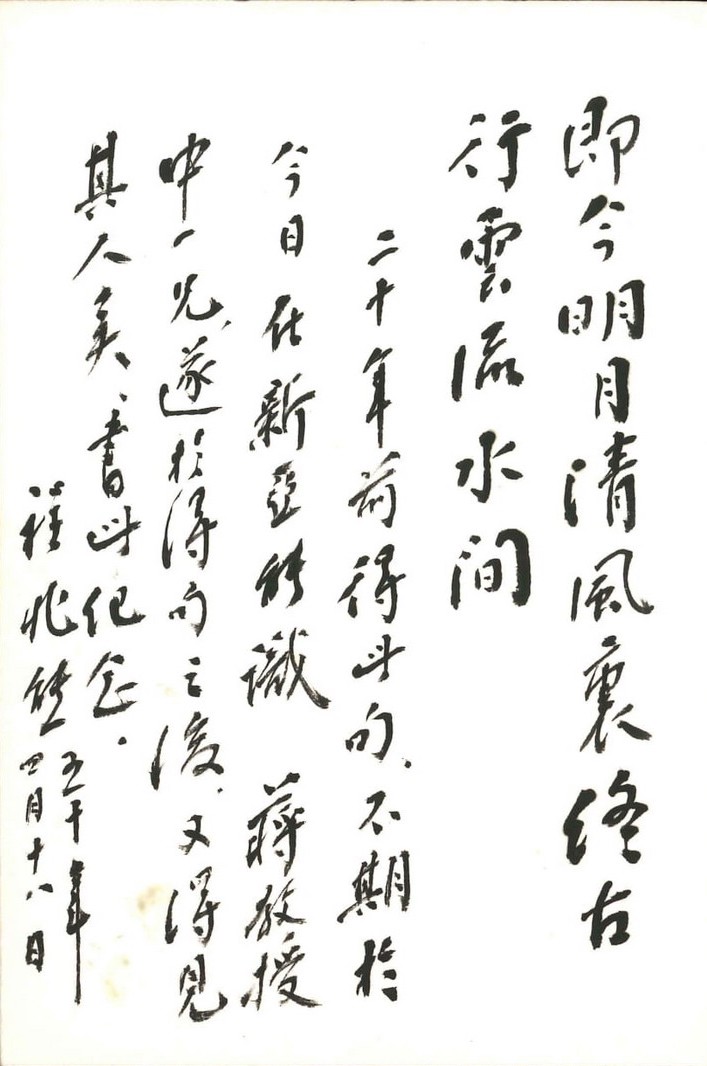 即今明月清風裏終古
行雲流水間
二十年前得此句、不期於
今日在新亞能識 蔣教授
中一兄、遂於得句之後、又得見
其人矣、書此紀念.
程兆熊 五十年
四月十八日